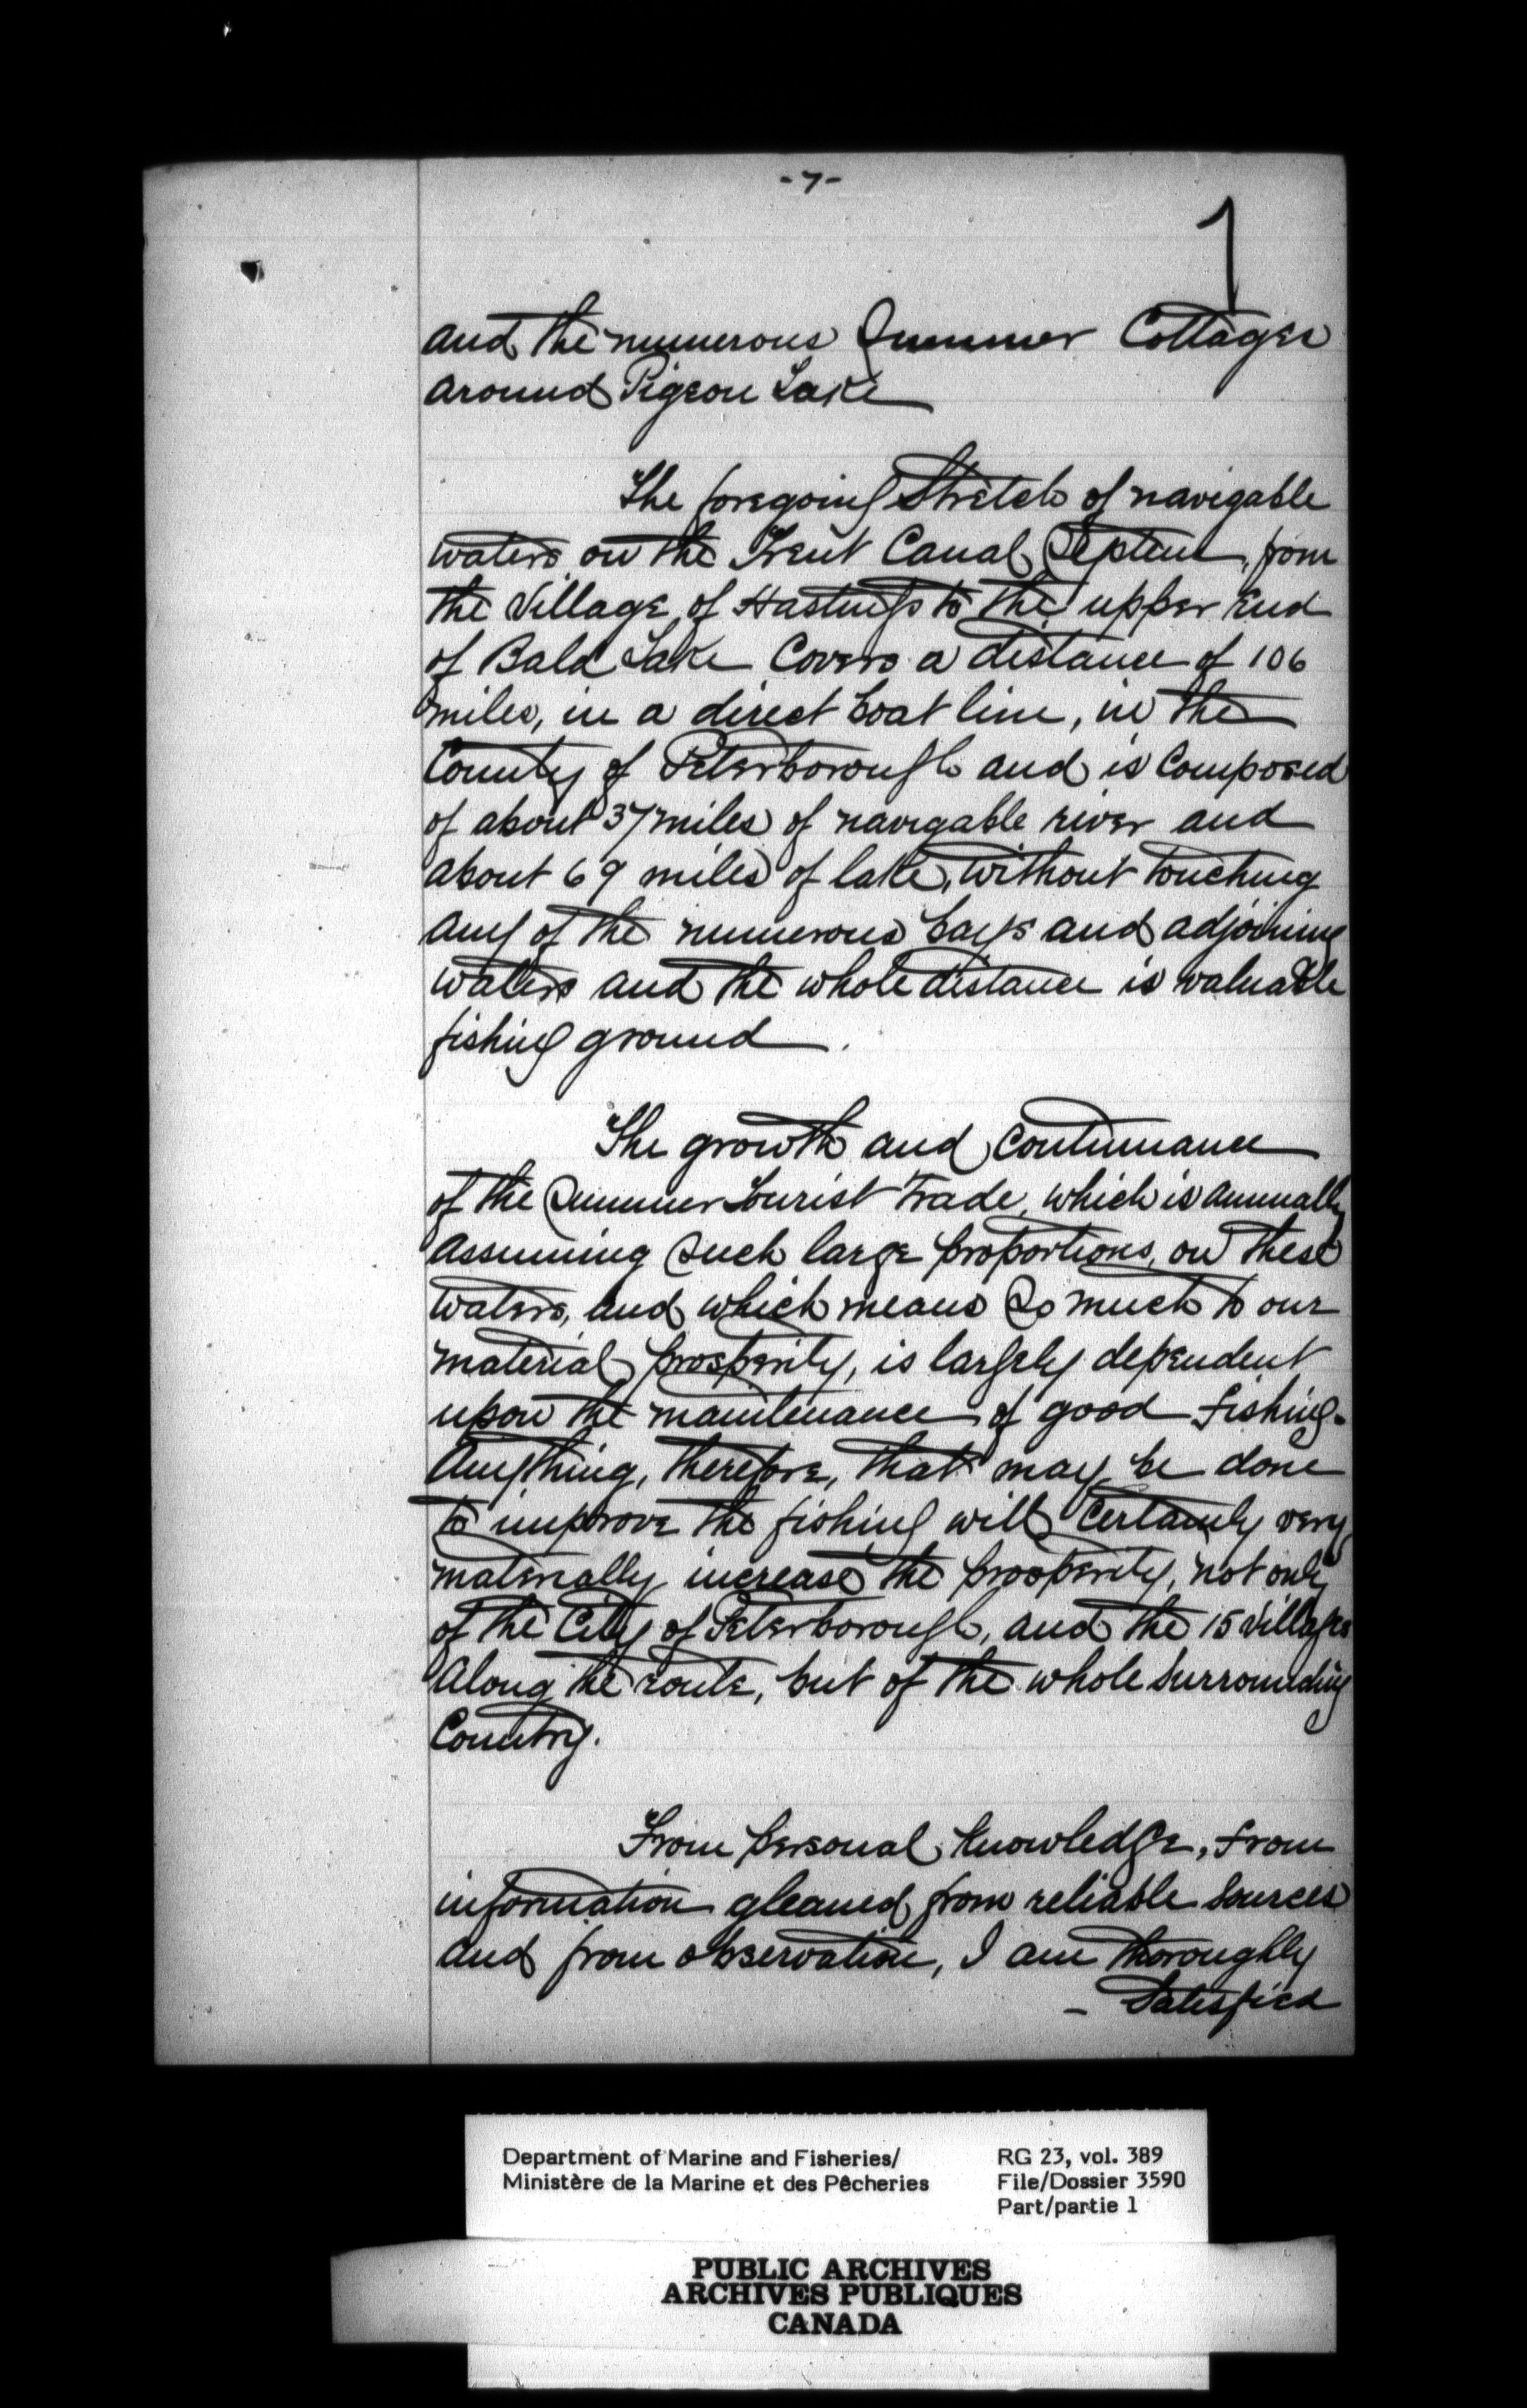 -7-
and the numerous Summer Cottages
around Pigeon Lake
The foregoing Stretch of navigable
waters on the Trent Canal System, from
the Village of Hastings to the upper End
of Bald Lake Covers a distance of 106
miles, in a direct boat line, in the
County of Peterborough and is Composed
of about 37 miles of navigable river and
about 69 miles of lake, without touching
any of the numerous bays and adjoining
waters and the whole distance is valuable
fishing ground.
The growth and Continuance
of the Summer Tourist Trade, which is annually
assuming such large proportions, on these
waters, and which means so much to our
material prosperity, is largely dependent
upon the maintenance of good fishing.
Anything, therefore, that may be done
to improve the fishing will Certainly very
materially increase the prosperity, not only
of the City of Peterborough, and the 15 Villages
along the route, but of the whole surrounding
Country.
From personal knowledge, from
information gleaned from reliable sources
and from observation, I am thoroughly
- Satisfied
Department of Marine and Fisheries/
Ministère de la Marine et des Pêcheries
RG 23, vol. 389
File/Dossier 3590
Part/partie 1
PUBLIC ARCHIVES
ARCHIVES PUBLIQUES
CANADA